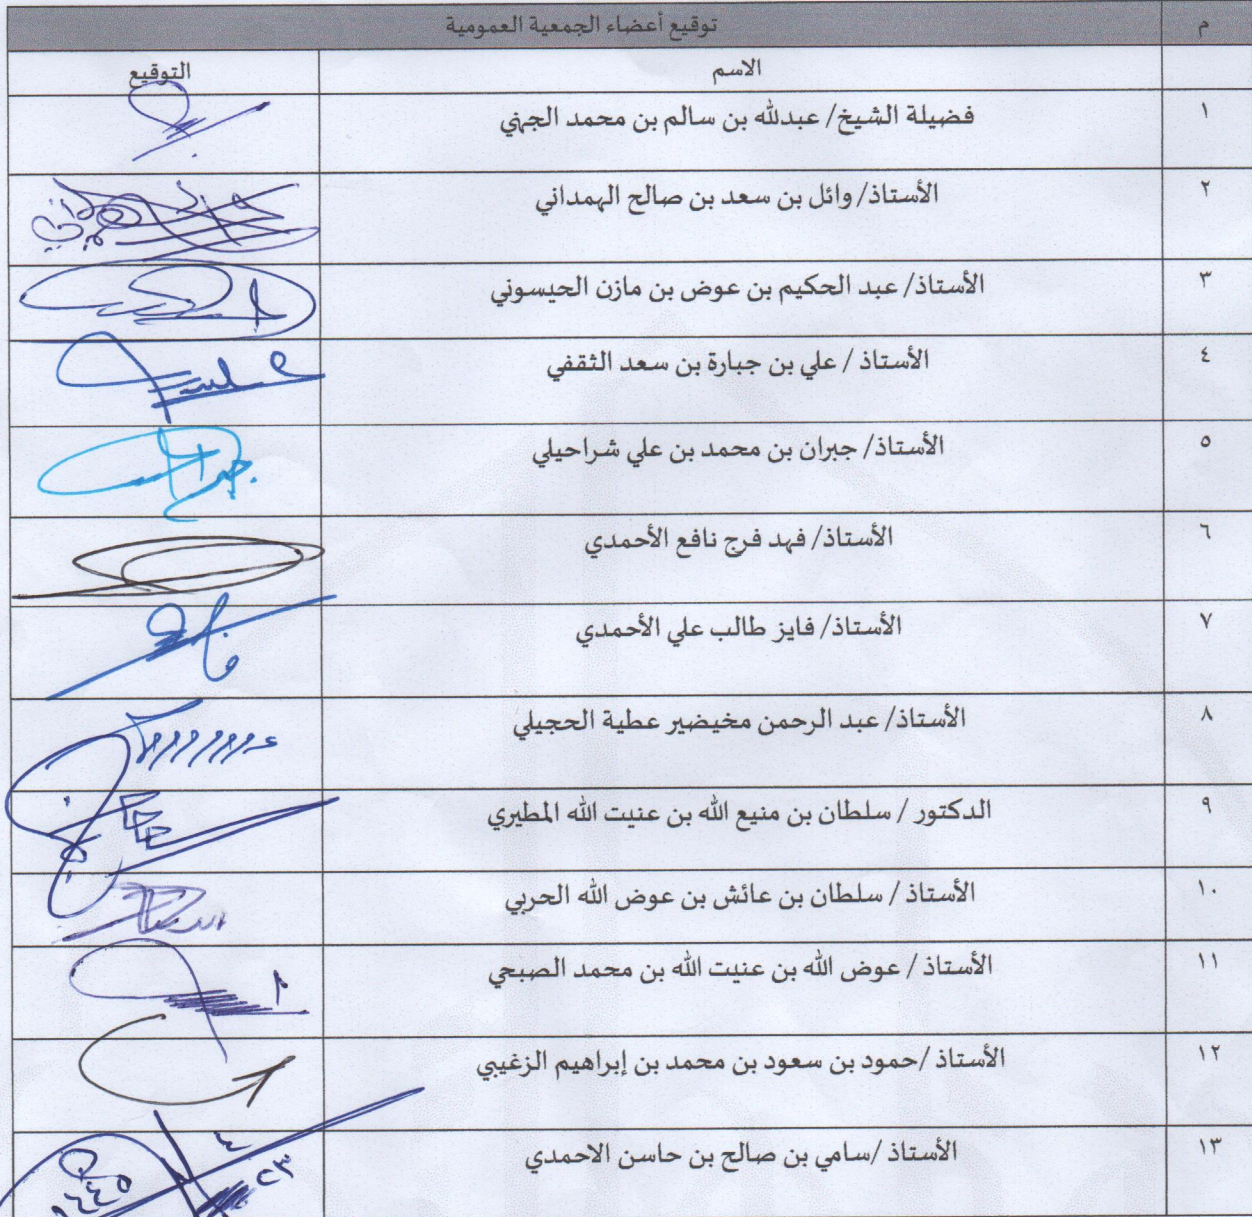 م توقيع أعضاء الجمعية العمومية
الاسم التوقيع
١ فضيلة الشيخ/ عبدلله بن سالم بن محمد الجهني
٢ الأستاذ/ وائل بن سعد بن صالح الهمداني
٣ الأستاذ/ عبد الحكيم بن عوض بن مازن الحيسوني
٤ الأستاذ / علي بن جبارة بن سعد الثقفي
٥ الأستاذ/ جبران بن محمد بن علي شراحيلي
٦ الأستاذ/ فهد فرج نافع الأحمدي
٧ الأستاذ/ فايز طالب علي الأحمدي
٨ الأستاذ/ عبد الرحمن مخيضير عطية الحجيلي
٩ الدكتور / سلطان بن منيع الله بن عنيت الله المطيري
١٠ الأستاذ / سلطان بن عائش بن عوض الله الحربي
١١ الأستاذ / عوض الله بن عنيت الله بن محمد الصبحي
١٢ الأستاذ /حمود بن سعود بن محمد بن إبراهيم الزغيبي
١٣ الأستاذ /سامي بن صالح بن حاسن الاحمدي